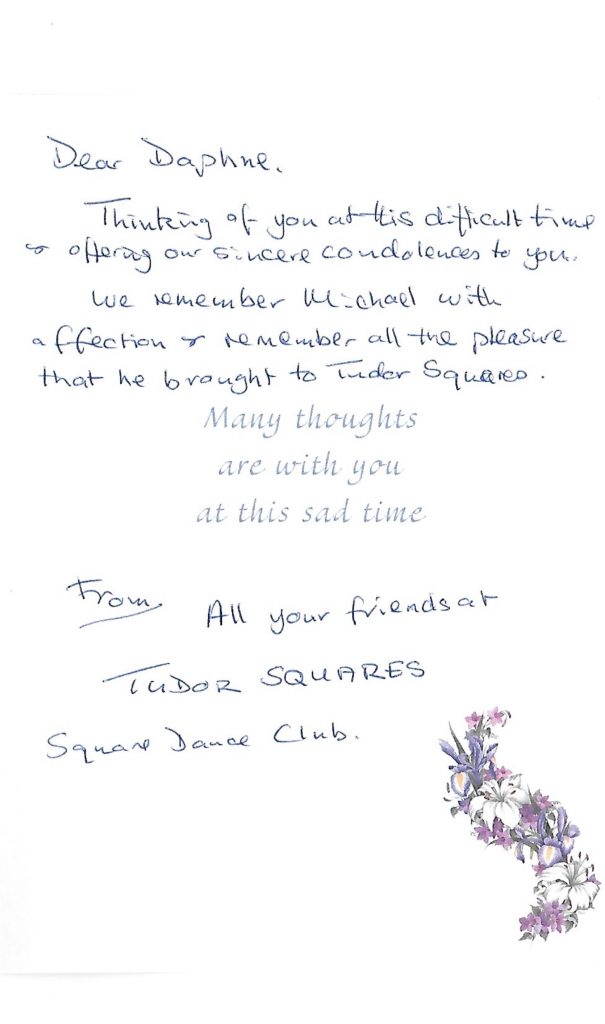 Dear Daphne.
Thinking of you at this difficult time
& offering our sincere condolences to you.
We remember Michael with
affection & remember all the pleasure
that he brought to Tudor Squares.
Many thoughts
are with you
at this sad time
From
All your friends at
TUDOR SQUARES
Square Dance Club.